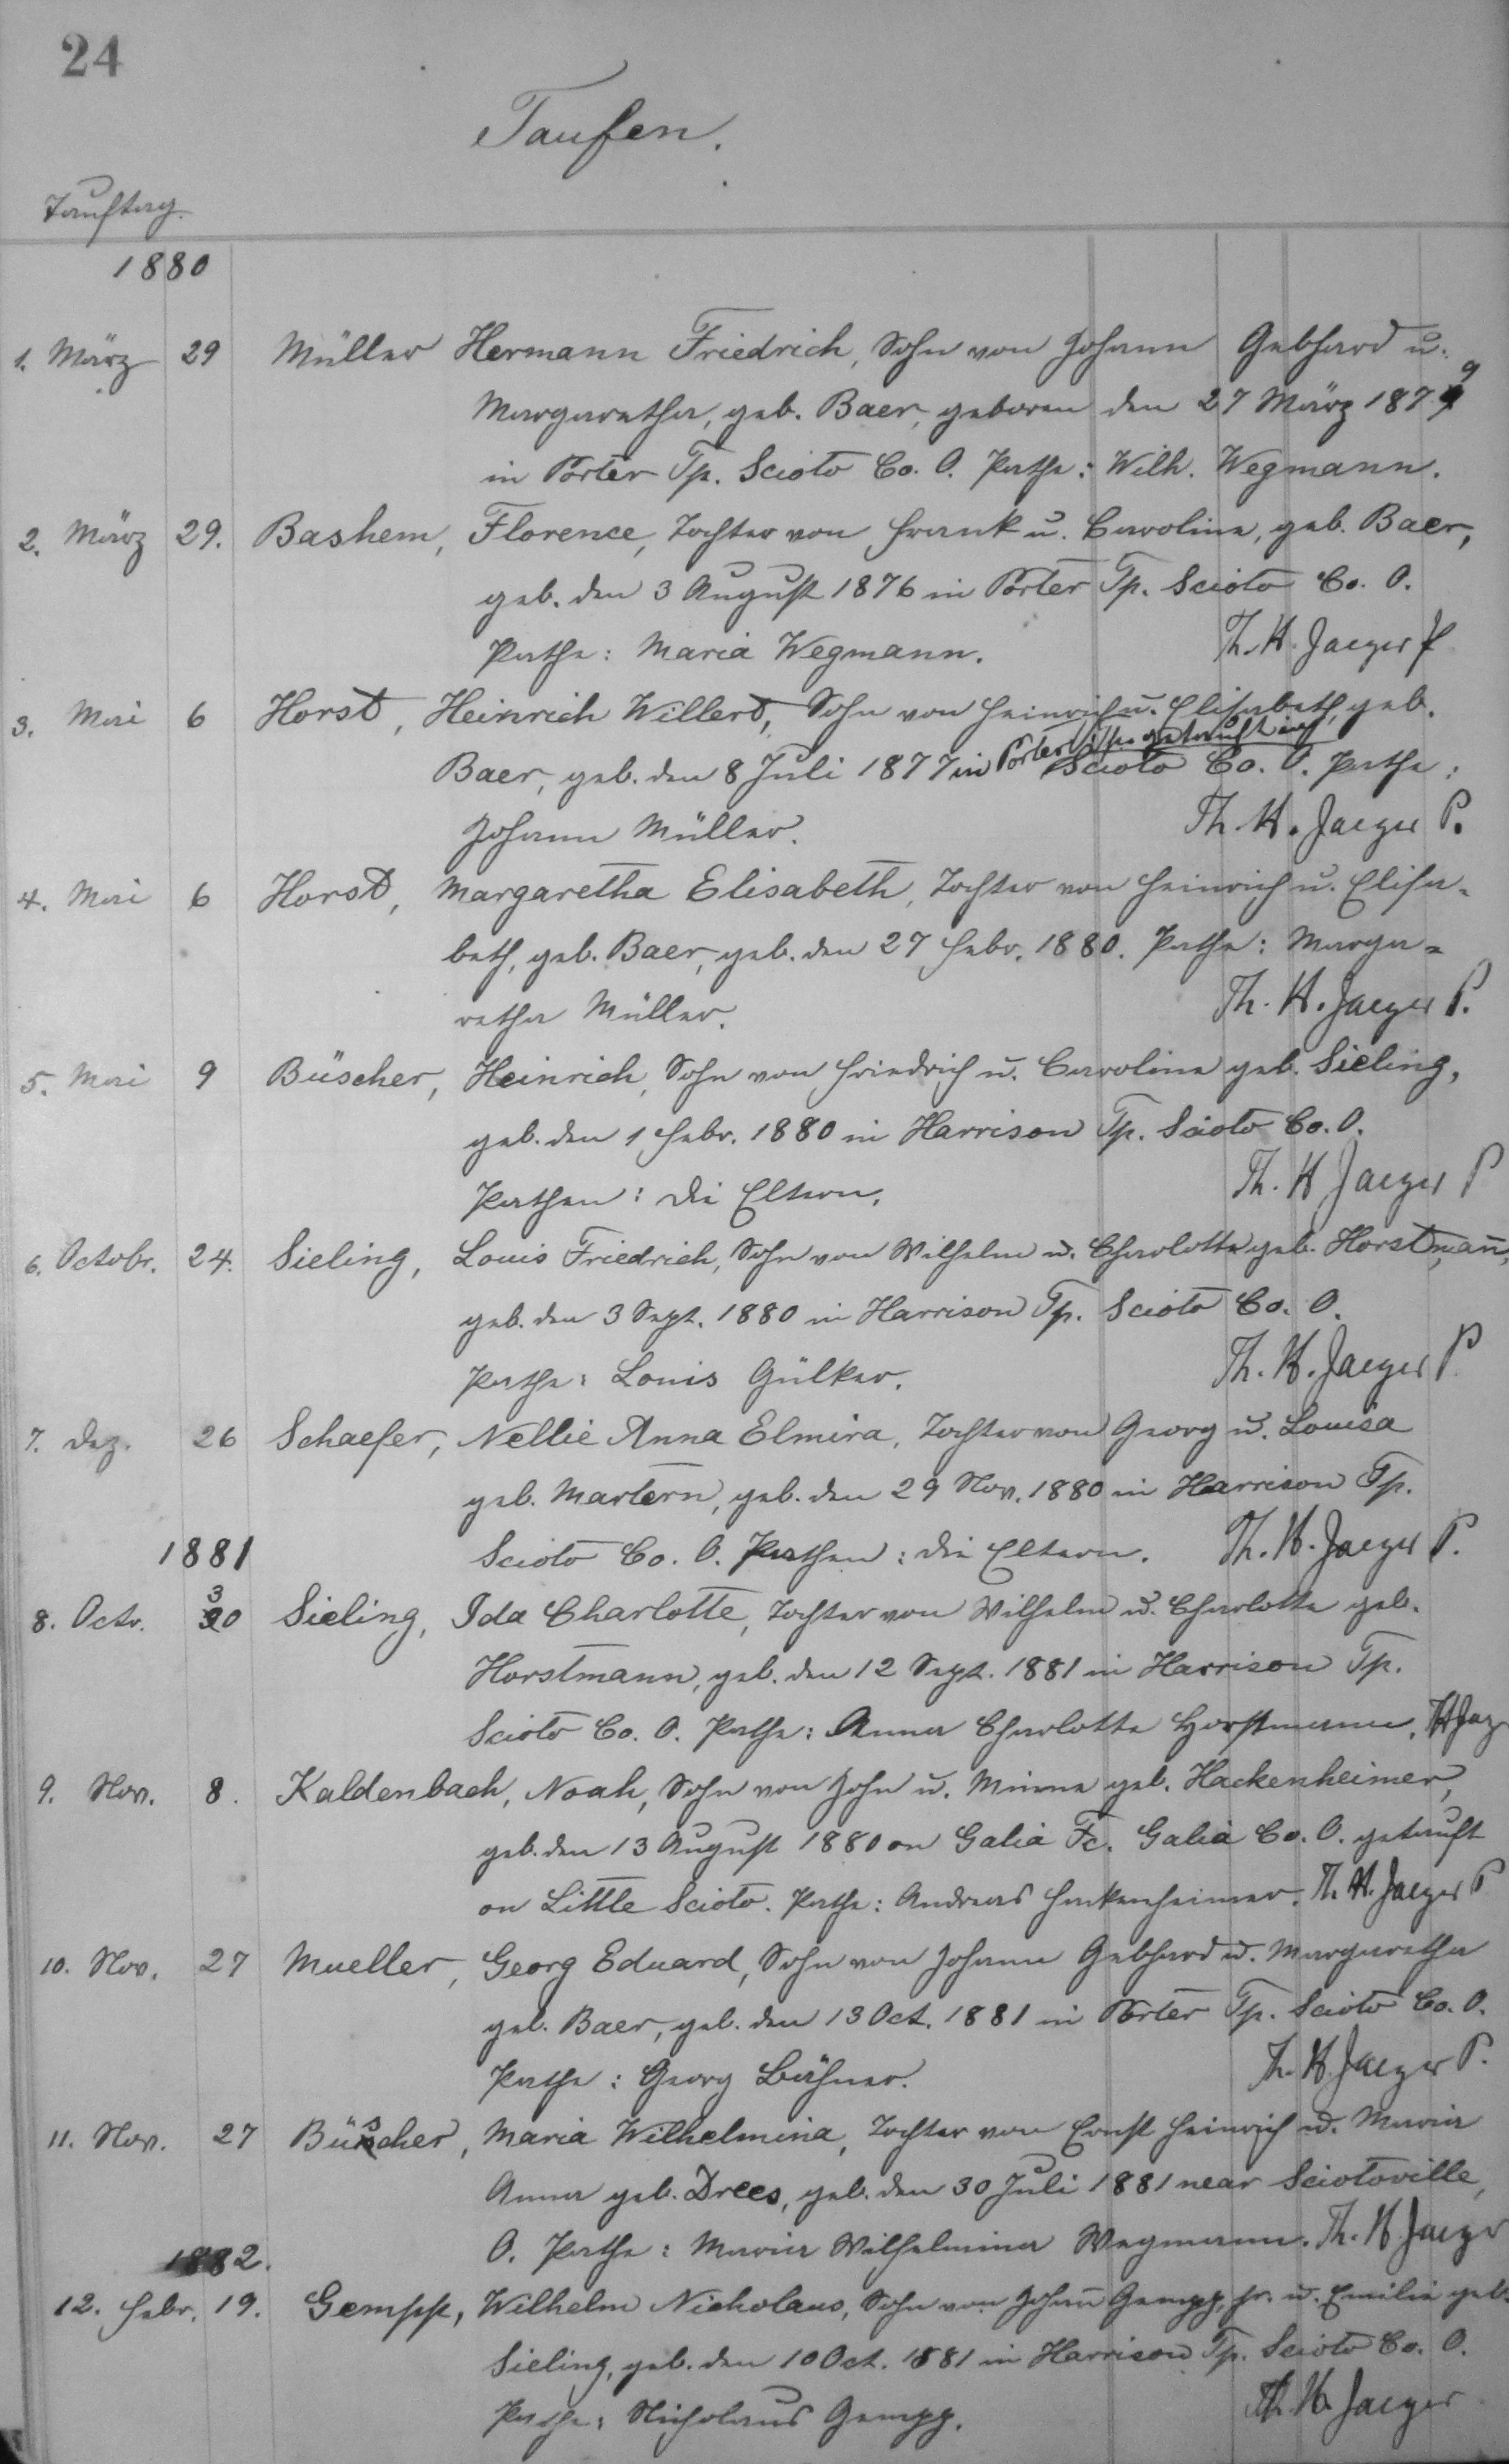 24
Taufen.
Tauftag.
1880
1. März 29 Müller Hermann Friedrich, Sohn von Johann Gebhard u.
Margaretha, geb. Baer, geboren den 27 März 1879
in Porter Tp. Scioto Co. O. Pathe: Wilh. Wegmann.
2. März 29. Bashem, Florence, Tochter von Frank u. Caroline, geb. Baer,
geb. den 3 August 1876 in Porter Tp. Scioto Co. O.
Pathe: Maria Wegmann. Th. H. Jaeger P
3. Mai 6 Horst, Heinrich Willert, Sohn von Heinrich u. Elisabeth, geb.
Baer, geb. den 8 Juli 1877 in Porter Tp. getauft in Scioto Co. O. Pathe:
Johann Müller. Th. H. Jaeger P.
4. Mai 6 Horst, Margaretha Elisabeth, Tochter von Heinrich u. Elisa-
beth, geb. Baer, geb. den 27 Febr. 1880. Pathe: Marga-
retha Müller. Th. H. Jaeger P.
5. Mai 9 Büscher, Heinrich, Sohn von Friedrich u. Caroline geb. Sieling,
geb. den 1 Febr. 1880 in Harrison Tp. Scioto Co. O.
Pathen: die Eltern. Th. H Jaeger P
6. Octobr. 24. Sieling, Louis Friedrich, Sohn von Wilhelm u. Charlotte geb. Horstman̄,
geb. den 3 Sept. 1880 in Harrison Tp. Scioto Co. O.
Pathe: Louis Gülker. Th. H. Jaeger P
7. Dez. 26 Schaefer, Nellie Anna Elmira, Tochter von Georg u. Louisa
geb. Martern, geb. den 29 Nov. 1880 in Harrison Tp.
1881 Scioto Co. O. Pathen: die Eltern. Th. H. Jaeger P.
8. Octr. 30 Sieling, Ida Charlotte, Tochter von Wilhelm u. Charlotte geb.
Horstmann, geb. den 12 Sept. 1881 in Harrison Tp.
Scioto Co. O. Pathe: Anna Charlotte Horstmann. THJaeg
9. Nov. 8. Kaldenbach, Noah, Sohn von John u. Minna geb. Hackenheimer,
geb. den 13 August 1880 on Galia Fc. Galia Co. O. getauft
on Little Scioto. Pathe: Andreas Hackenheimer. Th. H. Jaeger P
10. Nov. 27 Mueller, Georg Eduard, Sohn von Johann Gebhard u. Margaretha
geb. Baer, geb. den 13 Oct. 1881 in Porter Tp. Scioto Co. O.
Pathe: Georg Bähner. Th. H. Jaeger P.
11. Nov. 27 Büscher, Maria Wilhelmina, Tochter von Ernst Heinrich u. Maria
Anna geb. Drees, geb. den 30 Juli 1881 near Sciotoville,
O. Pathe: Maria Wilhelmina Wegmann. Th. H. Jaeger
1882.
12. Febr. 19. Gempp, Wilhelm Nicholaus, Sohn von Johan̄ Gempp, jr. u. Emilie geb.
Sieling, geb. den 10 Oct. 1881 in Harrison Tp. Scioto Co. O.
Pathe: Nicholaus Gempp. Th. H. Jaeger